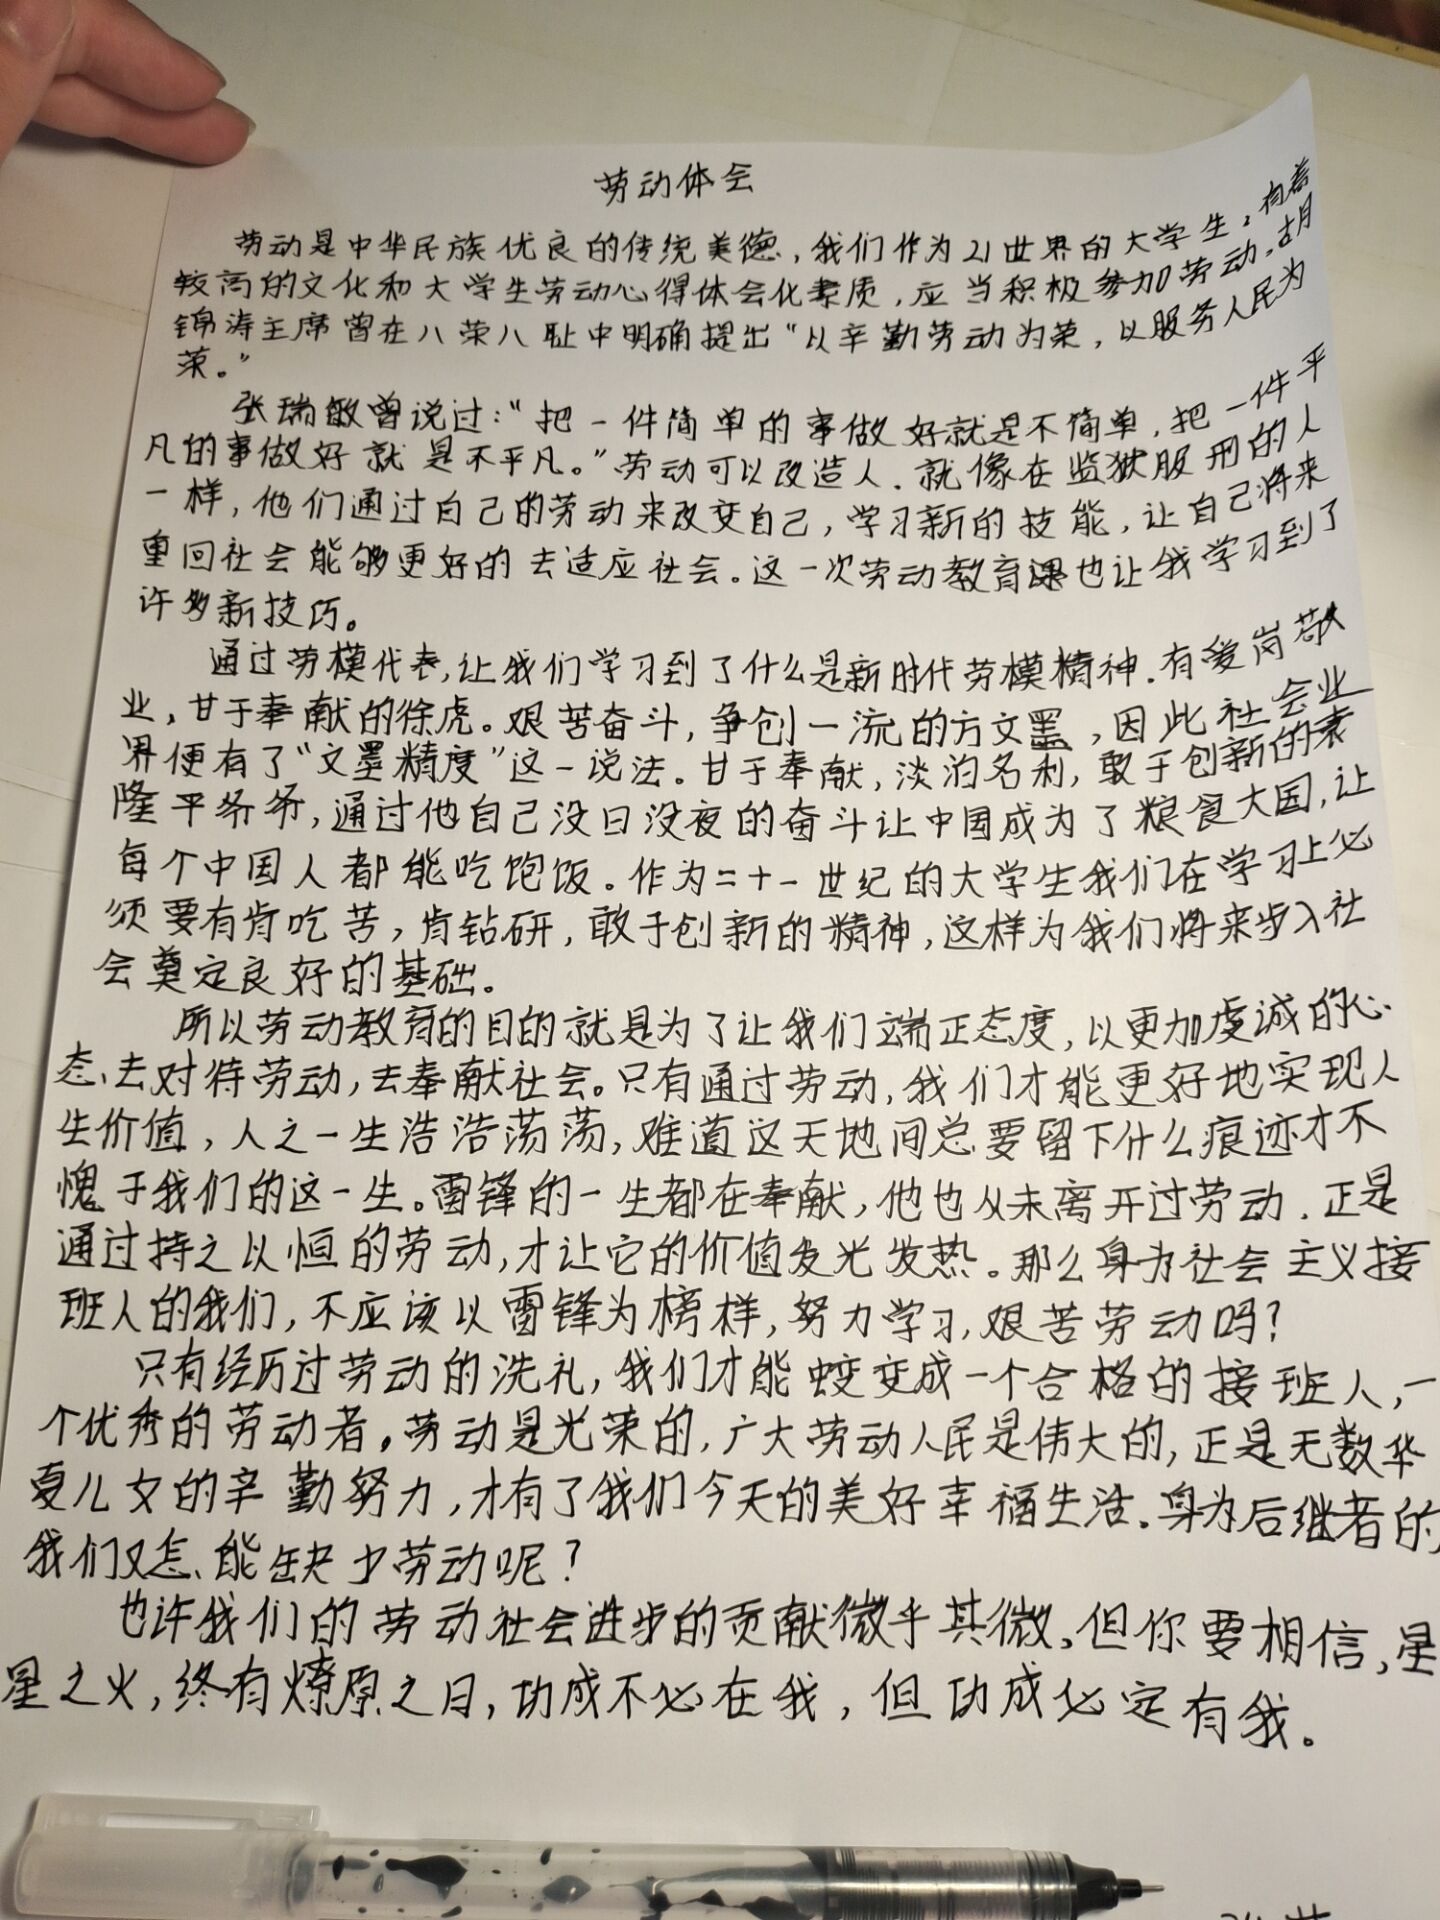 劳动体会
劳动是中华民族优良的传统美德,我们作为21世界的大学生,有着
较高的文化和大学生劳动心得体会化素质,应当积极参加劳动.胡
锦涛主席曾在八荣八耻中明确提出“以辛勤劳动为荣,以服务人民为
荣。”
张瑞敏曾说过:“把一件简单的事做好就是不简单,把一件平
凡的事做好就是不平凡。”劳动可以改造人.就像在监狱服刑的人
一样,他们通过自己的劳动来改变自己,学习新的技能,让自己将来
重回社会能够更好的去适应社会。这一次劳动教育课也让我学习到了
许多新技巧。
通过劳模代表,让我们学习到了什么是新时代劳模精神.有爱岗敬
业,甘于奉献的徐虎。艰苦奋斗,争创一流的方文墨,因此社会业
界便有了“文墨精度”这一说法。甘于奉献,淡泊名利,敢于创新的袁
隆平爷爷,通过他自己没日没夜的奋斗让中国成为了粮食大国,让
每个中国人都能吃饱饭。作为二十一世纪的大学生我们在学习上必
须要有肯吃苦,肯钻研,敢于创新的精神,这样为我们将来步入社
会奠定良好的基础。
所以劳动教育的目的就是为了让我们端正态度,以更加虔诚的心
态去对待劳动,去奉献社会。只有通过劳动,我们才能更好地实现人
生价值,人之一生浩浩荡荡,难道这天地间总要留下什么痕迹才不
愧于我们的这一生。雷锋的一生都在奉献,他也从未离开过劳动.正是
通过持之以恒的劳动,才让它的价值发光发热。那么身为社会主义接
班人的我们,不应该以雷锋为榜样,努力学习,艰苦劳动吗?
只有经历过劳动的洗礼,我们才能蜕变成一个合格的接班人,一
个优秀的劳动者。劳动是光荣的,广大劳动人民是伟大的,正是无数华
夏儿女的辛勤努力,才有了我们今天的美好幸福生活.身为后继者的
我们又怎能缺少劳动呢?
也许我们的劳动社会进步的贡献微乎其微,但你要相信,星
星之火,终有燎原之日,功成不必在我,但功成必定有我。